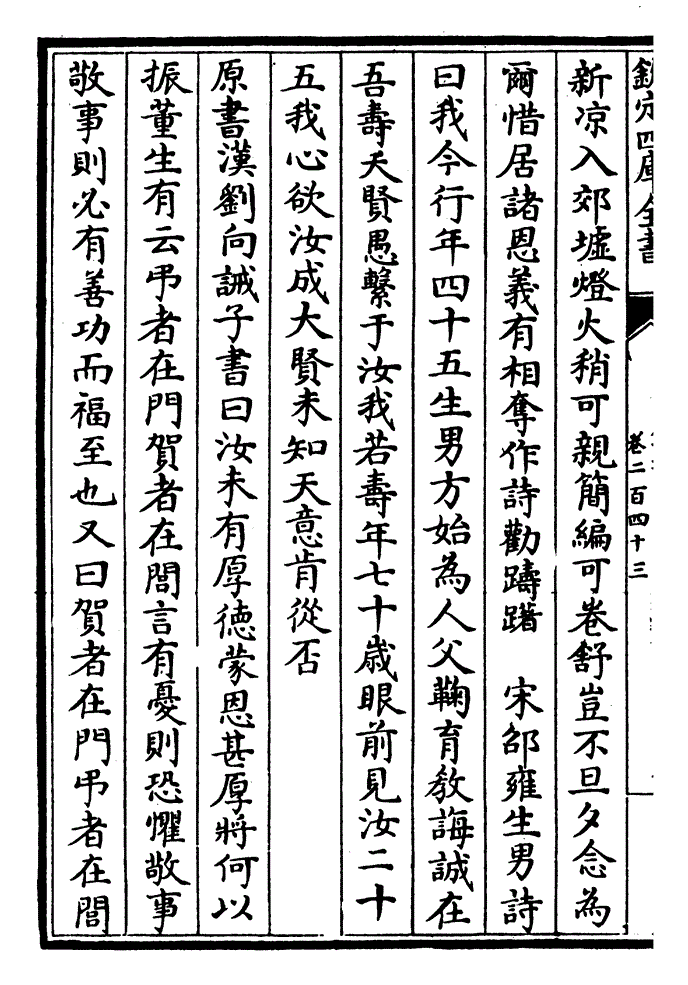 欽定四庫全書
卷二百四十三
新涼入郊墟燈火稍可親簡編可卷舒豈不旦夕念為
爾惜居諸恩義有相奪作詩勸躊躇　宋邵雍生男詩
曰我今行年四十五生男方始為人父鞠育敎誨誠在
吾壽夭賢愚繫于汝我若壽年七十歲眼前見汝二十
五我心欲汝成大賢未知天意肯從否
原書漢劉向誡子書曰汝未有厚德蒙恩甚厚將何以
振董生有云弔者在門賀者在閭言有憂則恐懼敬事
敬事則必有善功而福至也又曰賀者在門弔者在閭